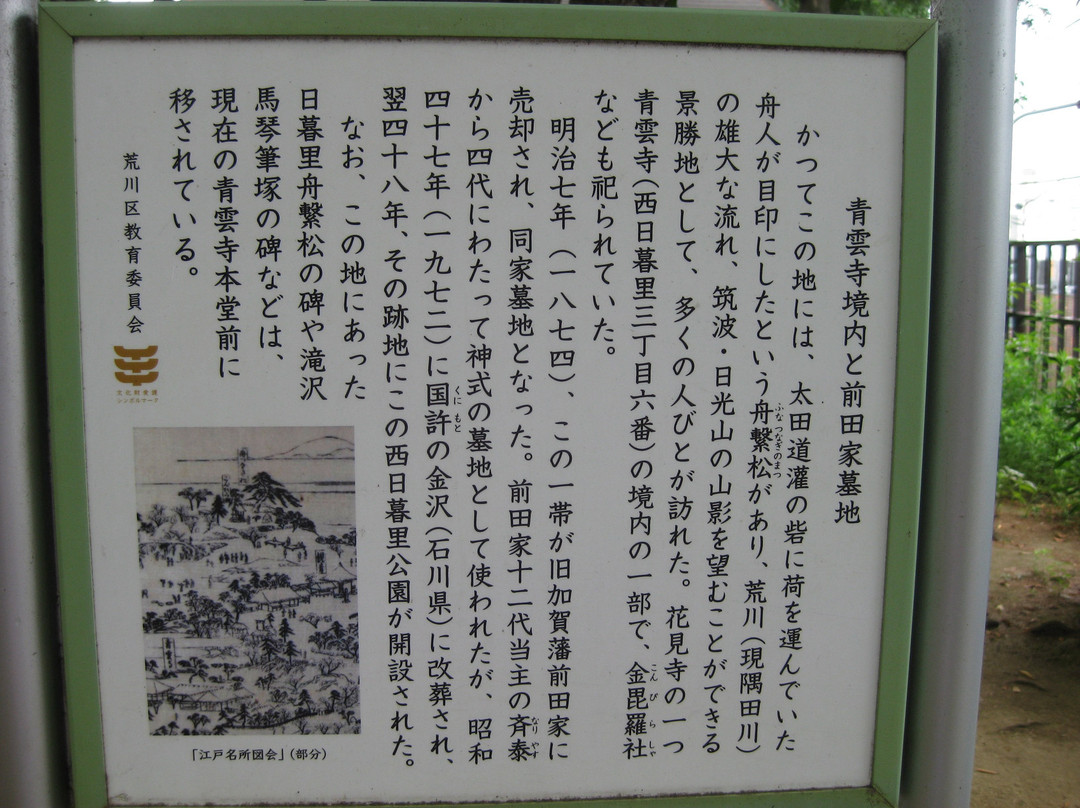 青雲寺境内と前田家墓地
かつてこの地には、太田道灌の砦に荷を運んでいた
舟人が目印にしたという舟繋松があり、荒川(現隅田川)
ふなつなぎのまつ
の雄大な流れ、筑波・日光山の山影を望むことができる
景勝地として、多くの人びとが訪れた。花見寺の一つ
青雲寺(西日暮里三丁目六番)の境内の一部で、金毘羅社
こんぴらしゃ
なども祀られていた。
明治七年(一八七四)、この一帯が旧加賀藩前田家に
売却され、同家墓地となった。前田家十二代当主の斉泰
なりやす
から四代にわたって神式の墓地として使われたが、昭和
四十七年(一九七二)に国許の金沢(石川県)に改葬され、
くにもと
翌四十八年、その跡地にこの西日暮里公園が開設された。
なお、この地にあった
日暮里舟繋松の碑や滝沢
馬琴筆塚の碑などは、
現在の青雲寺本堂前に
移されている。
荒川区教育委員会
文化財愛護
シンボルマーク
「江戸名所図会」(部分)